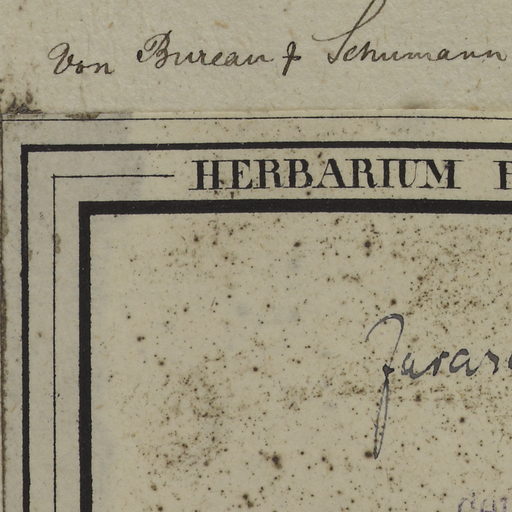 Von Bureau & Schumann
HERBARIUM